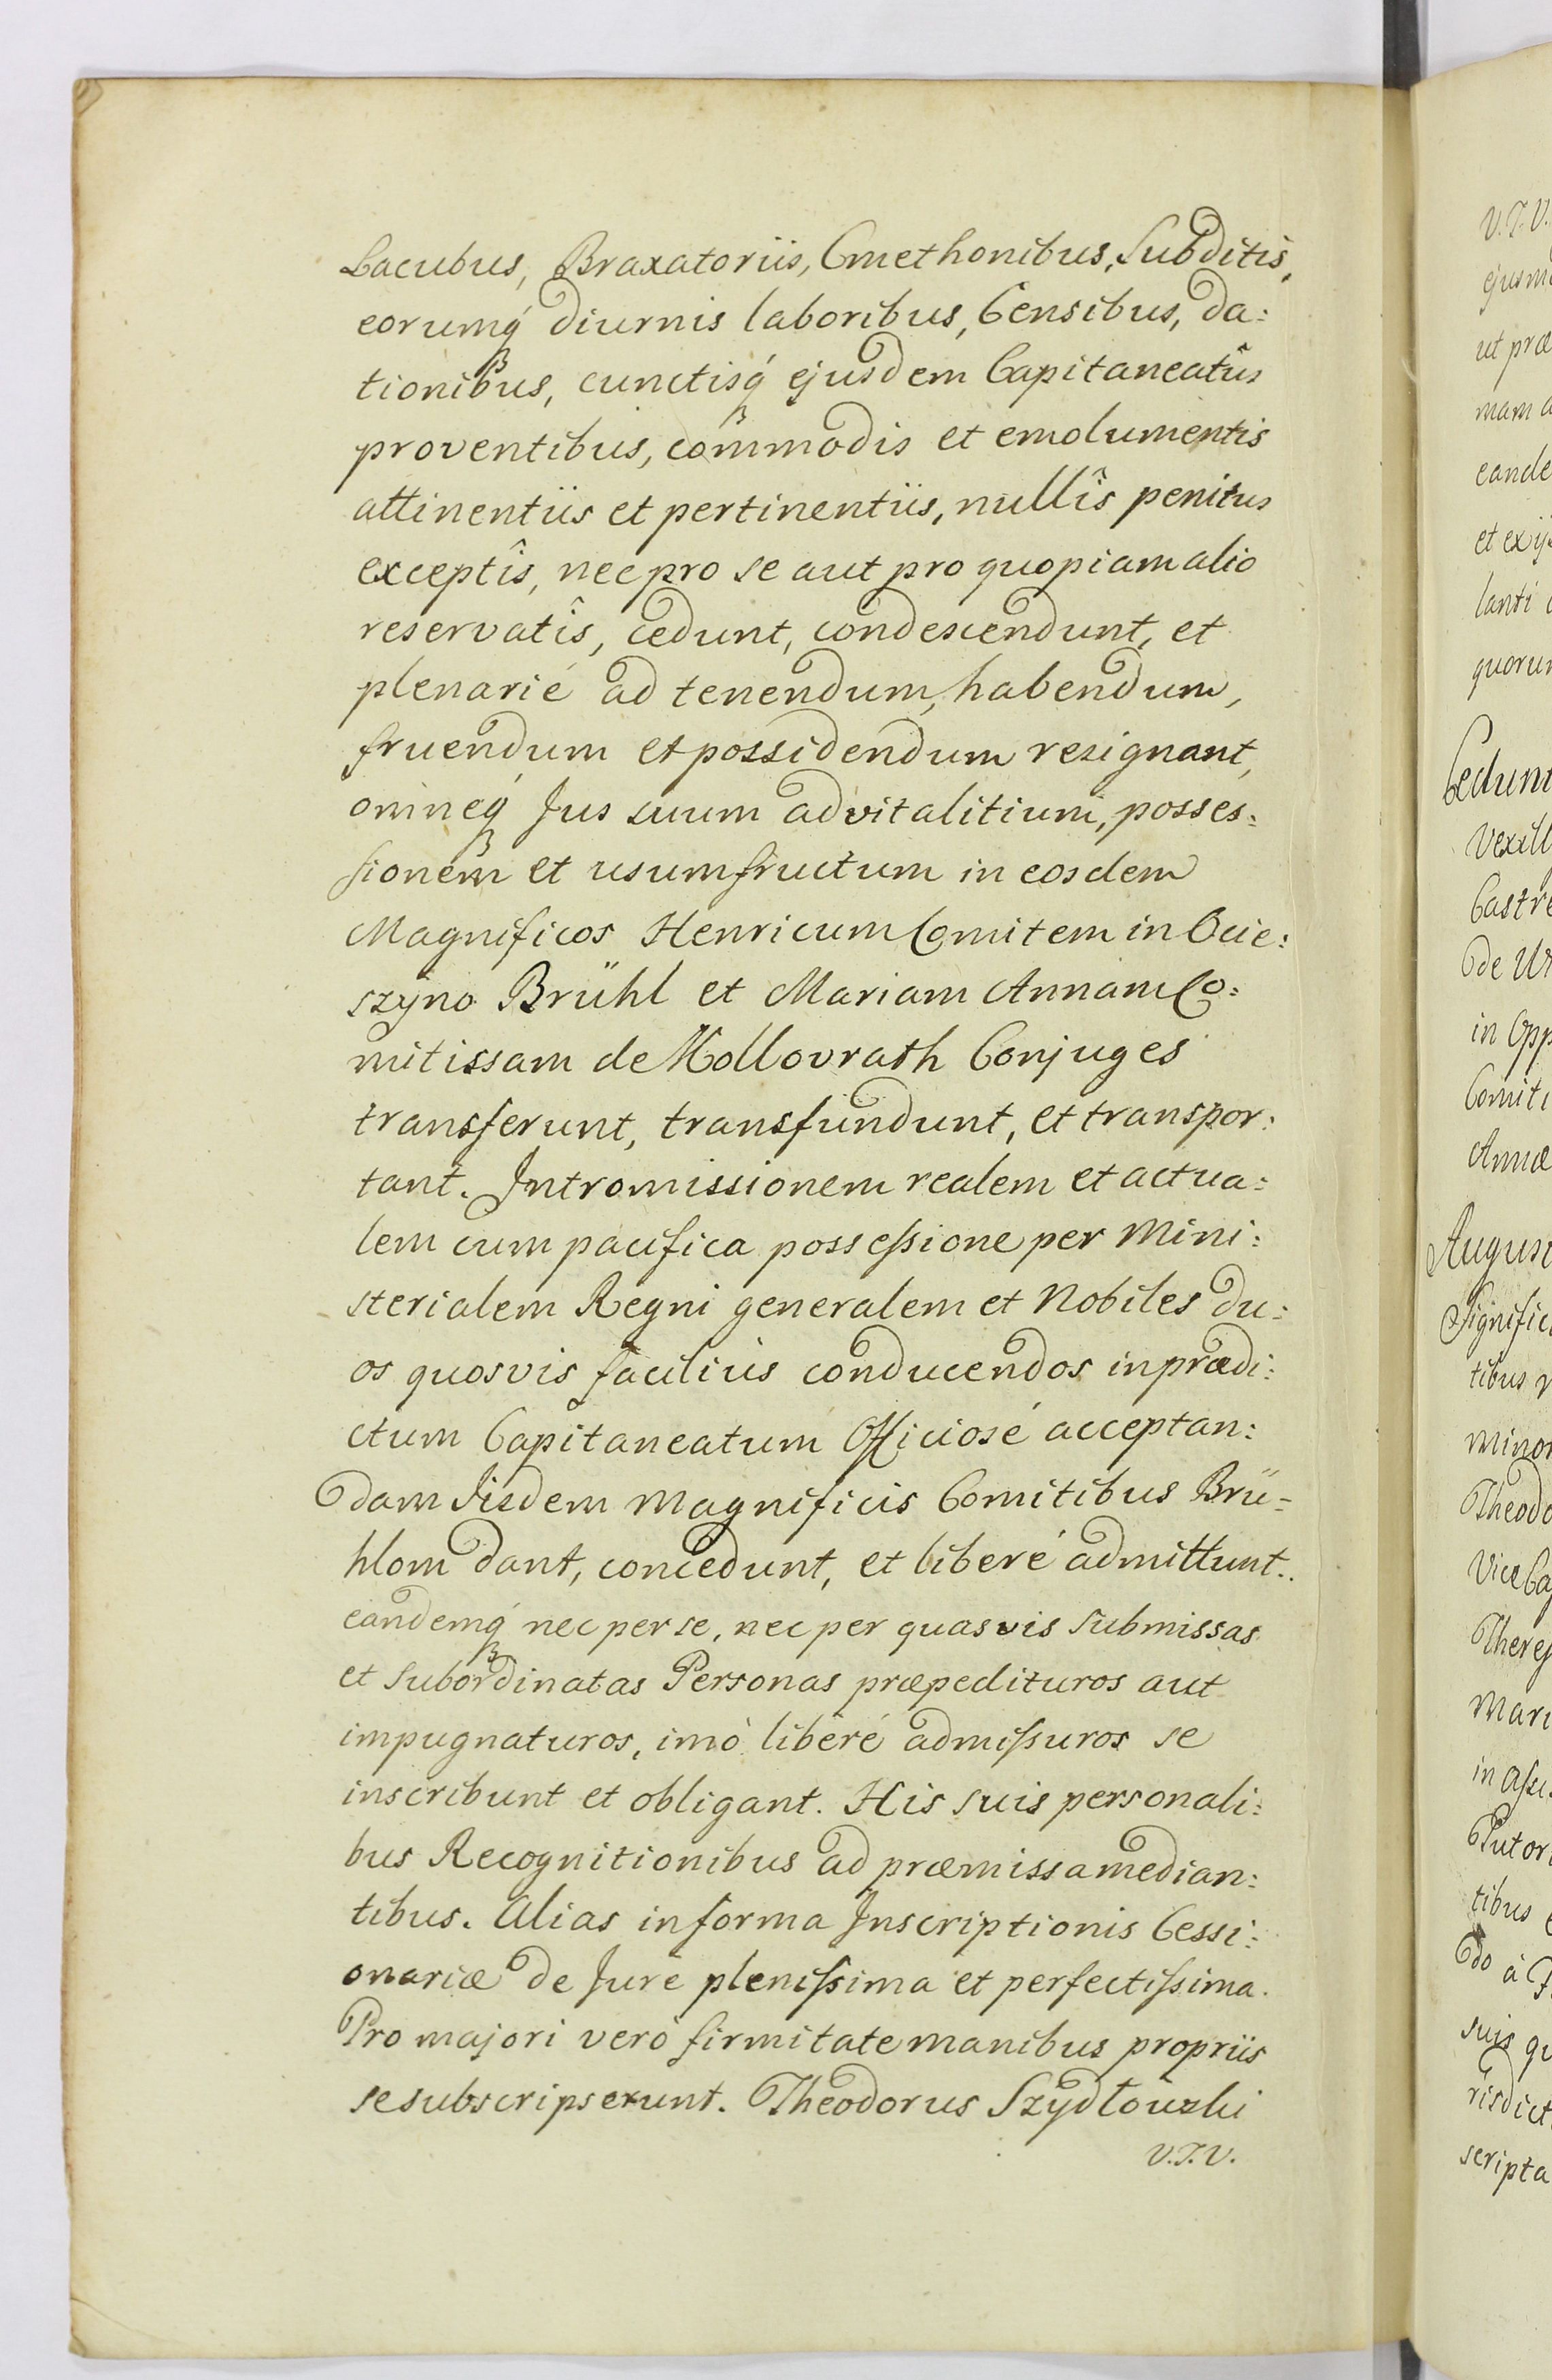 Lacubus, Braxatoriis, Cmethonibus, Subditis,
eorumq́ diurnis laboribus, Censibus, da:
tionibus, cunctisq́ ejusdem Capitaneatûs
proventibus, commodis et emolumentis
attinentiis et pertinentiis, nullîs penitus
exceptîs, nec pro se aut pro quopiam alio
reservatîs, cedunt, condescendunt, et
plenarié ad tenendum, habendum,
fruendum et possidendum resignant,
omneq́ Jus suum advitalitium, posses:
sionem et usumfructum in eosdem
Magnificos Henricum Comitem in Ocie:
szyno Brühl et Mariam Annam Co:
mitissam de Kollovrath Conjuges
transferunt, transfundunt, et transpor:
tant. Intromissionem realem et actua:
lem cum pacifica possessione per Mini:
sterialem Regni generalem et Nobiles du:
os quosvis facilius conducendos in prædi:
ctum Capitaneatum Officiosé acceptan:
dam Iisdem Magnificis Comitibus Brü-
hlom dant, concedunt, et liberé admittunt.
eandemq́ nec per se, nec per quasvis submissas
et subordinatas Personas præpedituros aut
impugnaturos, imò liberé admissuros se
inscribunt et obligant. His suis personali:
bus Recognitionibus ad præmissa median:
tibus. Alias in forma Inscriptionis Cessi:
onariæ de Jure plenissima et perfectissima.
Pro majori verò firmitate manibus propriis
se subscripserunt. Theodorus Szydłowski
V.T.V.
V.T.V.
ut præ
mam
eande
lanti
quorum
Cedunt
Vexill
Castre
de
in Opp
Comiti
Annæ
August
Signific
tibus
minor
Theodo
Vice Ca
Theres
Mari
Tutor
tibus
do à
suis
risdict
scripta